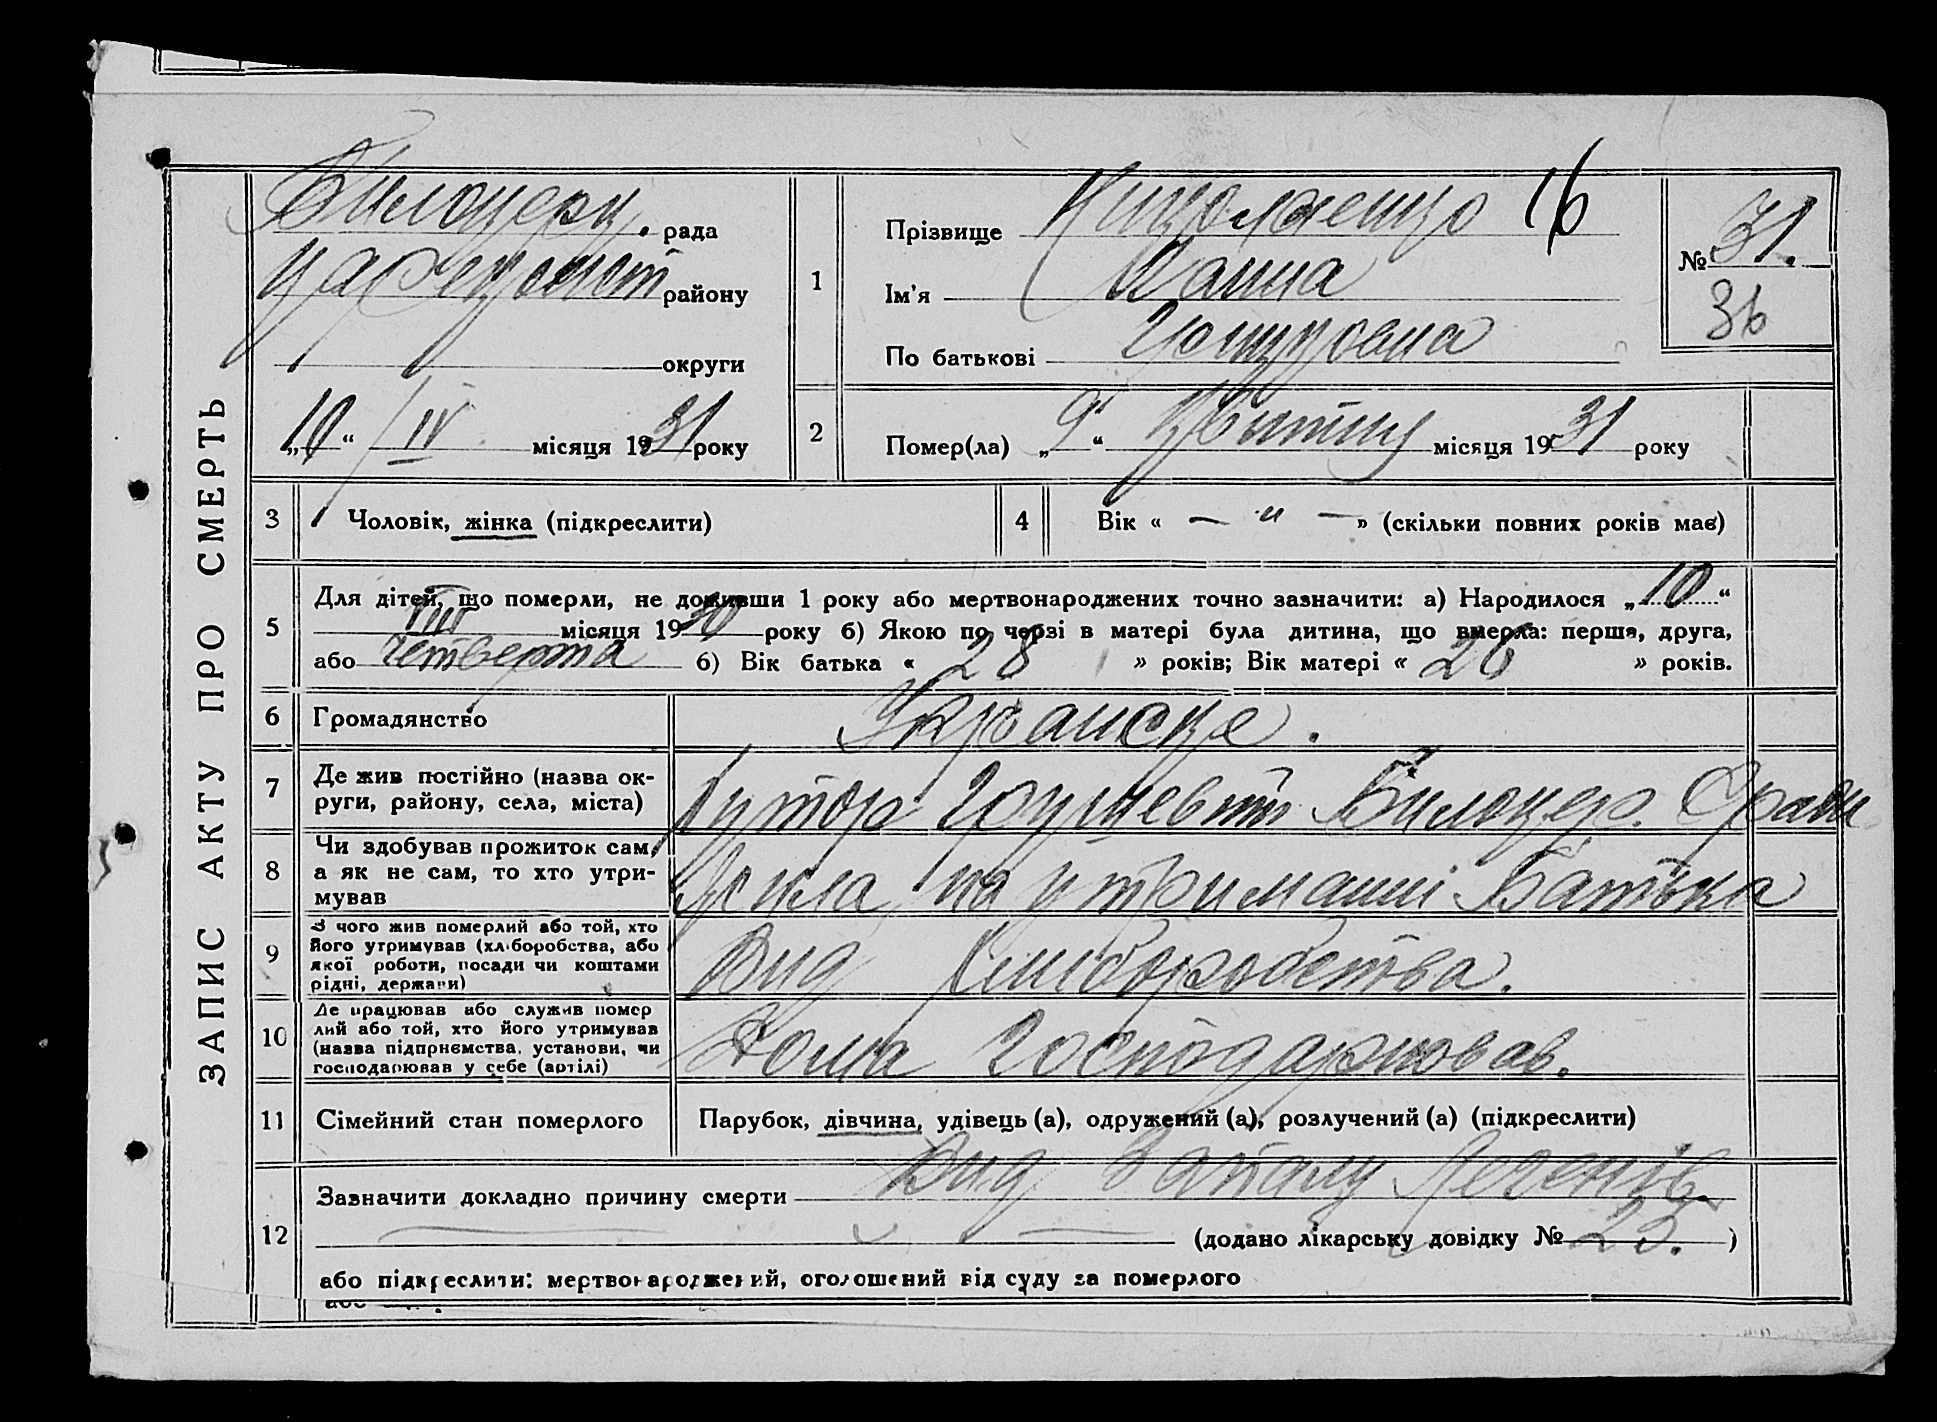 ЗАПИС АКТУ ПРО СМЕРТЬ
Билоцерк. рада
району
округи
„10“ IV місяця 1931 року
1
Прізвище 16
Ім'я Ганна
По батькові
№ 31.
36
2
Помер(ла) „9“ Квитня місяця 1931 року
3 Чоловік, жінка (підкреслити)
4 Вік « — " — » (скільки повних років має)
5 Для дітей, що померли, не доживши 1 року або мертвонароджених точно зазначити: а) Народилося „10“
VIII місяця 1930 року б) Якою по черзі в матері була дитина, що вмерла: перша, друга,
або четверта б) Вік батька « 28 » років; Вік матері « 26 » років.
6 Громадянство Украинске.
7 Де жив постійно (назва округи, району, села, міста) Хутор Билоцер. Сради
8 Чи здобував прожиток сам, а як не сам, то хто утримував на утриманні Батька
9 З чого жив померлий або той, хто його утримував (хліборобства, або якої роботи, посади чи коштами рідні, держави) Вид Хлиборобства.
10 Де працював або служив померлий або той, хто його утримував (назва підприємства, установи, чи господарював у себе (артілі) Дома Господарював.
11 Сімейний стан померлого Парубок, дівчина, удівець (а), одружений (а), розлучений (а) (підкреслити)
12 Зазначити докладно причину смерти Вид Запалу Легенів.
(додано лікарську довідку № 23. )
або підкреслити: мертвонароджений, оголошений від суду за померлого
або